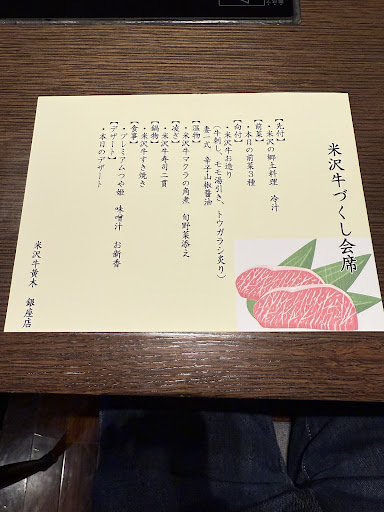 米沢牛づくし会席
【先付】
・米沢の郷土料理 冷汁
【前菜】
・本日の前菜3種
【向付】
・米沢牛お造り
(牛刺し、モモ湯引き、トウガラシ炙り)
妻一式、辛子山椒醤油
【温物】
・米沢牛マクラの角煮 旬野菜添え
【凌ぎ】
・米沢牛寿司二貫
【鍋物】
・米沢牛すき焼き
【食事】
・プレミアムつや姫 味噌汁 お新香
【デザート】
・本日のデザート
米沢牛黄木 銀座店